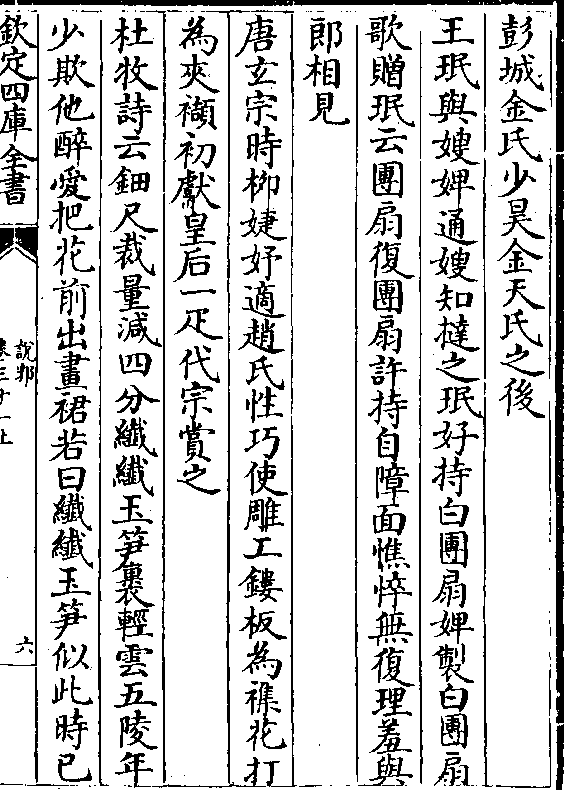 彭城金氏少昊金天氏之後
王珉與嫂婢通嫂知撻之珉好持白團扇婢製白團扇
歌贈珉云團扇復團扇許持自障面憔悴無復理羞與
郎相見
唐玄宗時柳婕妤適趙氏性巧使雕工鏤板為襍花打
為夾纈初獻皇后一疋代宗賞之
杜牧詩云鈿尺裁量減四分纖纖玉笋裹輕雲五陵年
少欺他醉愛把花前出畫裙若曰纖纖玉笋似此時已
欽定四庫全書
說郛
卷三十一上
六